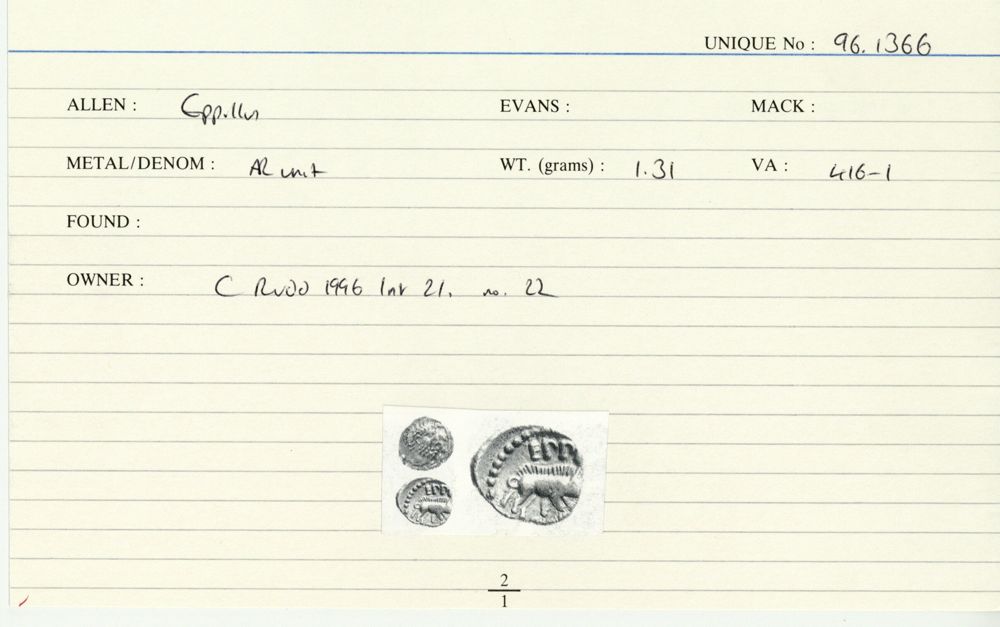 UNIQUE No : 96.1366
ALLEN : Eppillus EVANS : MACK :
METAL/DENOM : AR unit WT. (grams) : 1.31 VA : 416-1
FOUND :
OWNER : C Rudd 1996 list 21. no. 22
EPP
EPP
2
1